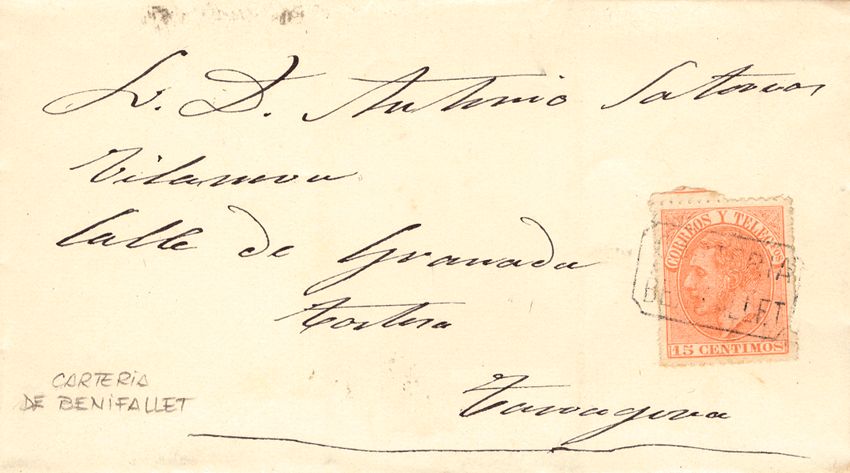 S. D. Antonio Satorres
Vilanova
Calle de Granada
Tortosa
Tarragona
CORREOS Y TELEGFOS
15 CENTIMOS
CARTERIA
DE BENIFALLET